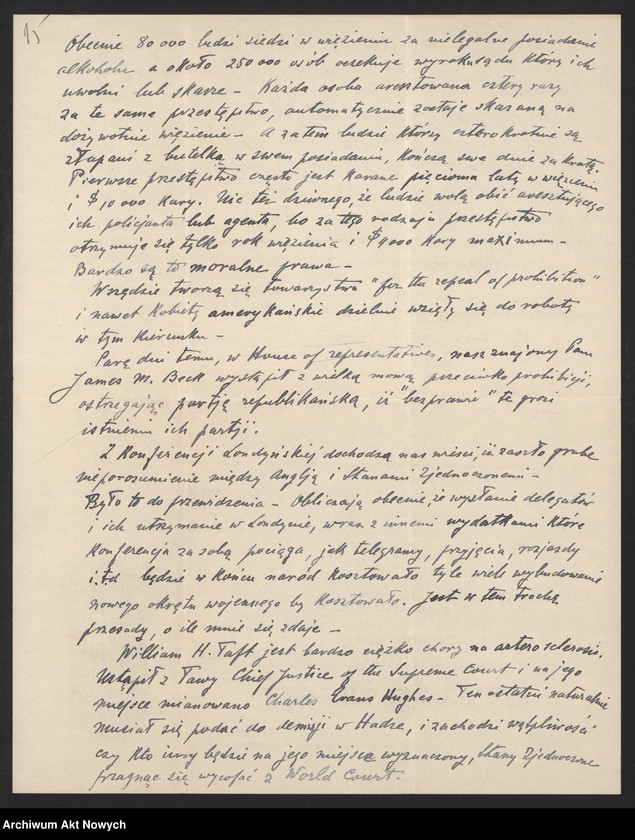 15
Obecnie 80000 ludzi siedzi w więzieniu za nielegalne posiadanie
alkoholu a około 250000 osób oczekuje wyroku sądu który ich
uwolni lub skarze – Każda osoba aresztowana cztery razy
za te same przestępstwo, automatycznie zostaje skazaną na
dożywotnie więzienie – A zatem ludzie którzy czterokrotnie są
złapani z butelką w swem posiadaniu, kończą swe dnie za kratą.
Pierwsze przestępstwo często jest karane pięcioma laty w więzieniu
i $10000 kary. Nic też dziwnego, że ludzie wolą obić aresztującego
ich policjanta lub agenta, bo za tego rodzaju przestępstwo
otrzymuje się tylko rok więzienia i $4000 kary maximum –
Bardzo są to moralne prawa –
Wszędzie tworzą się towarzystwa "for the repeal of prohibition"
i nawet kobiety amerykańskie dzielnie wzięły się do roboty
w tym kierunku –
Parę dni temu, w House of representatives, nasz znajomy Pan
James M. Beck wystąpił z wielką mową przeciwko prohibicji,
ostrzegając partję republikańską, iż "bezprawie" te grozi
istnieniu ich partji.
Z Konferencji Londyńskiej dochodzą nas wieści, iż zaszło grube
nieporozumienie między Anglją i Stanami Zjednoczonemi –
Było to do przewidzenia – Obliczają obecnie, że wysłanie delegatów
i ich utrzymanie w Londynie, wraz z innemi wydatkami które
Konferencja za sobą pociąga, jak telegramy, przyjęcia, rozjazdy
i.t.d będzie w końcu naród kosztowało tyle wiele wybudowanie
nowego okrętu wojennego by kosztowało. Jest w tem trochę
przesady, o ile mnie się zdaje –
William H. Taft jest bardzo ciężko chory na arterosclerosis.
Ustąpił z Ławy Chief Justice of the Supreme Court i na jego
miejsce mianowano Charles Evans Hughes – Ten ostatni naturalnie
musiał się podać do demisji w Hadze, i zachodzi wątpliwość
czy kto inny będzie na jego miejsce wyznaczony, Stany Zjednoczone
pragnąc się wycofać z World Court.
Archiwum Akt Nowych